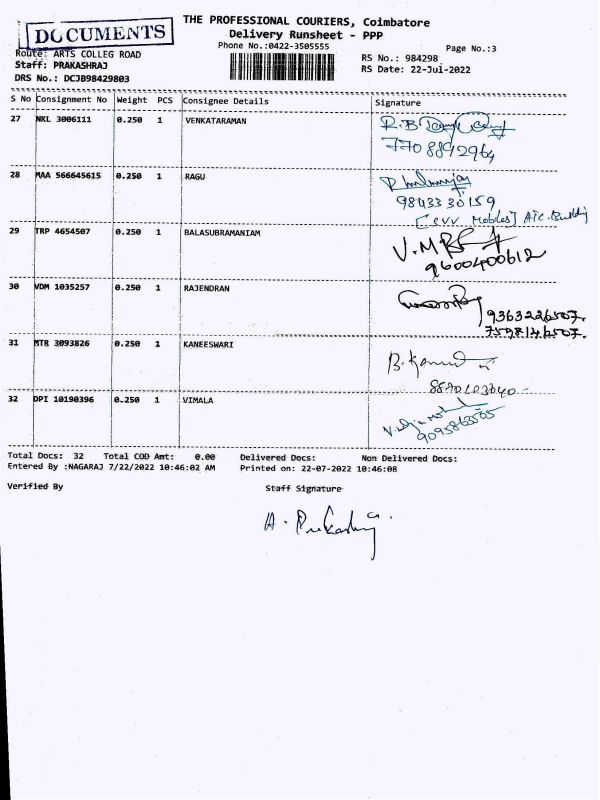 DOCUMENTS
THE PROFESSIONAL COURIERS, Coimbatore
Delivery Runsheet - PPP
Phone No.:0422-3505555
Page No.:3
Route: ARTS COLLEG ROAD
Staff: PRAKASHRAJ
DRS No.: DCJB98429803
RS No.: 984298
RS Date: 22-Jul-2022
S No Consignment No Weight PCS Consignee Details Signature
27 NKL 3006111 0.250 1 VENKATARAMAN R.B
7708892964
28 MAA 566645615 0.250 1 RAGU
9843330159
[CVV Mobles] A/C. Building
29 TRP 4654507 0.250 1 BALASUBRAMANIAM V.M
9600400612
30 VDM 1035257 0.250 1 RAJENDRAN
9363226507.
7598146507.
31 MTR 3093826 0.250 1 KANEESWARI B.
32 DPI 10190396 0.250 1 VIMALA
Total Docs: 32 Total COD Amt: 0.00 Delivered Docs: Non Delivered Docs:
Entered By :NAGARAJ 7/22/2022 10:46:02 AM Printed on: 22-07-2022 10:46:08
Verified By Staff Signature
A.